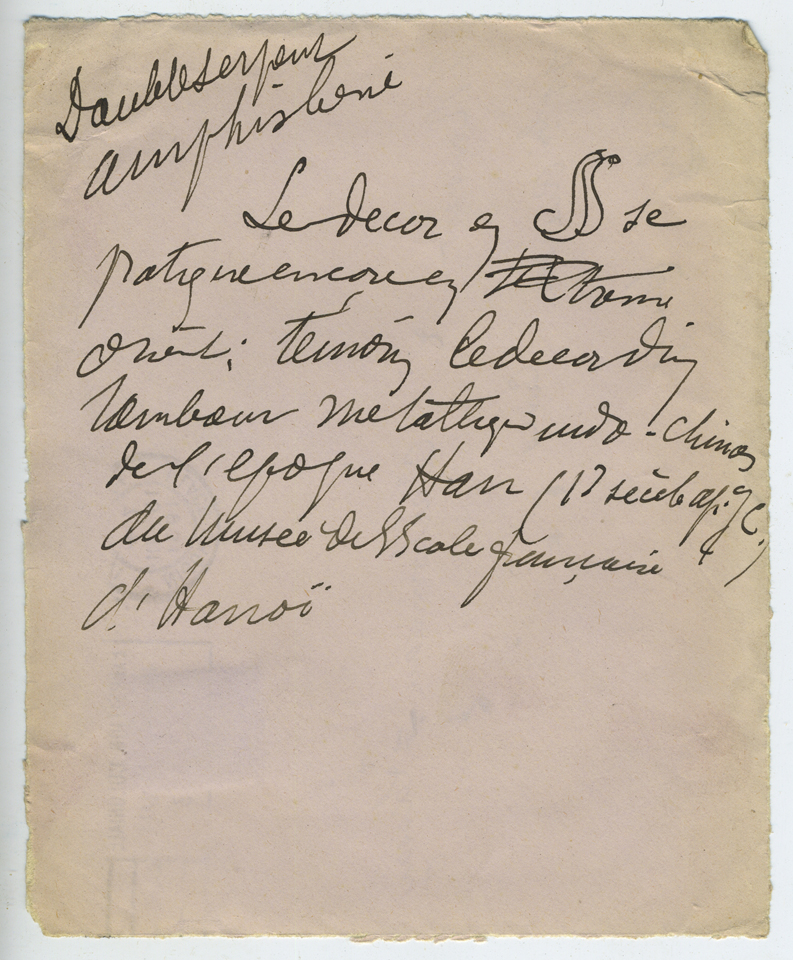 Double serpent
amphisbène
Le decor en SS se
pratique encore en extreme
orient; témoin le decor d'un
tambour métallique indo-chinois
de l'epoque Han (1er siècle ap. J C.)
du Musée de l'Ecole française
d'Hanoï